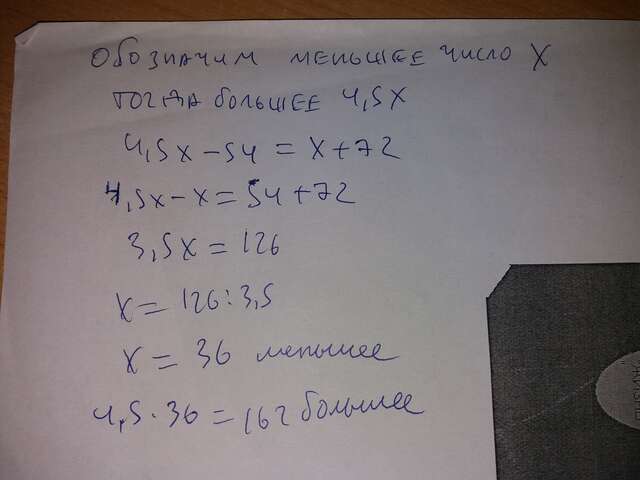 Обозначим меньшее число X
тогда большее 4,5x
4,5x - 54 = x + 72
4,5x - x = 54 + 72
3,5x = 126
x = 126 : 3,5
x = 36 меньшее
4,5 · 36 = 162 большее